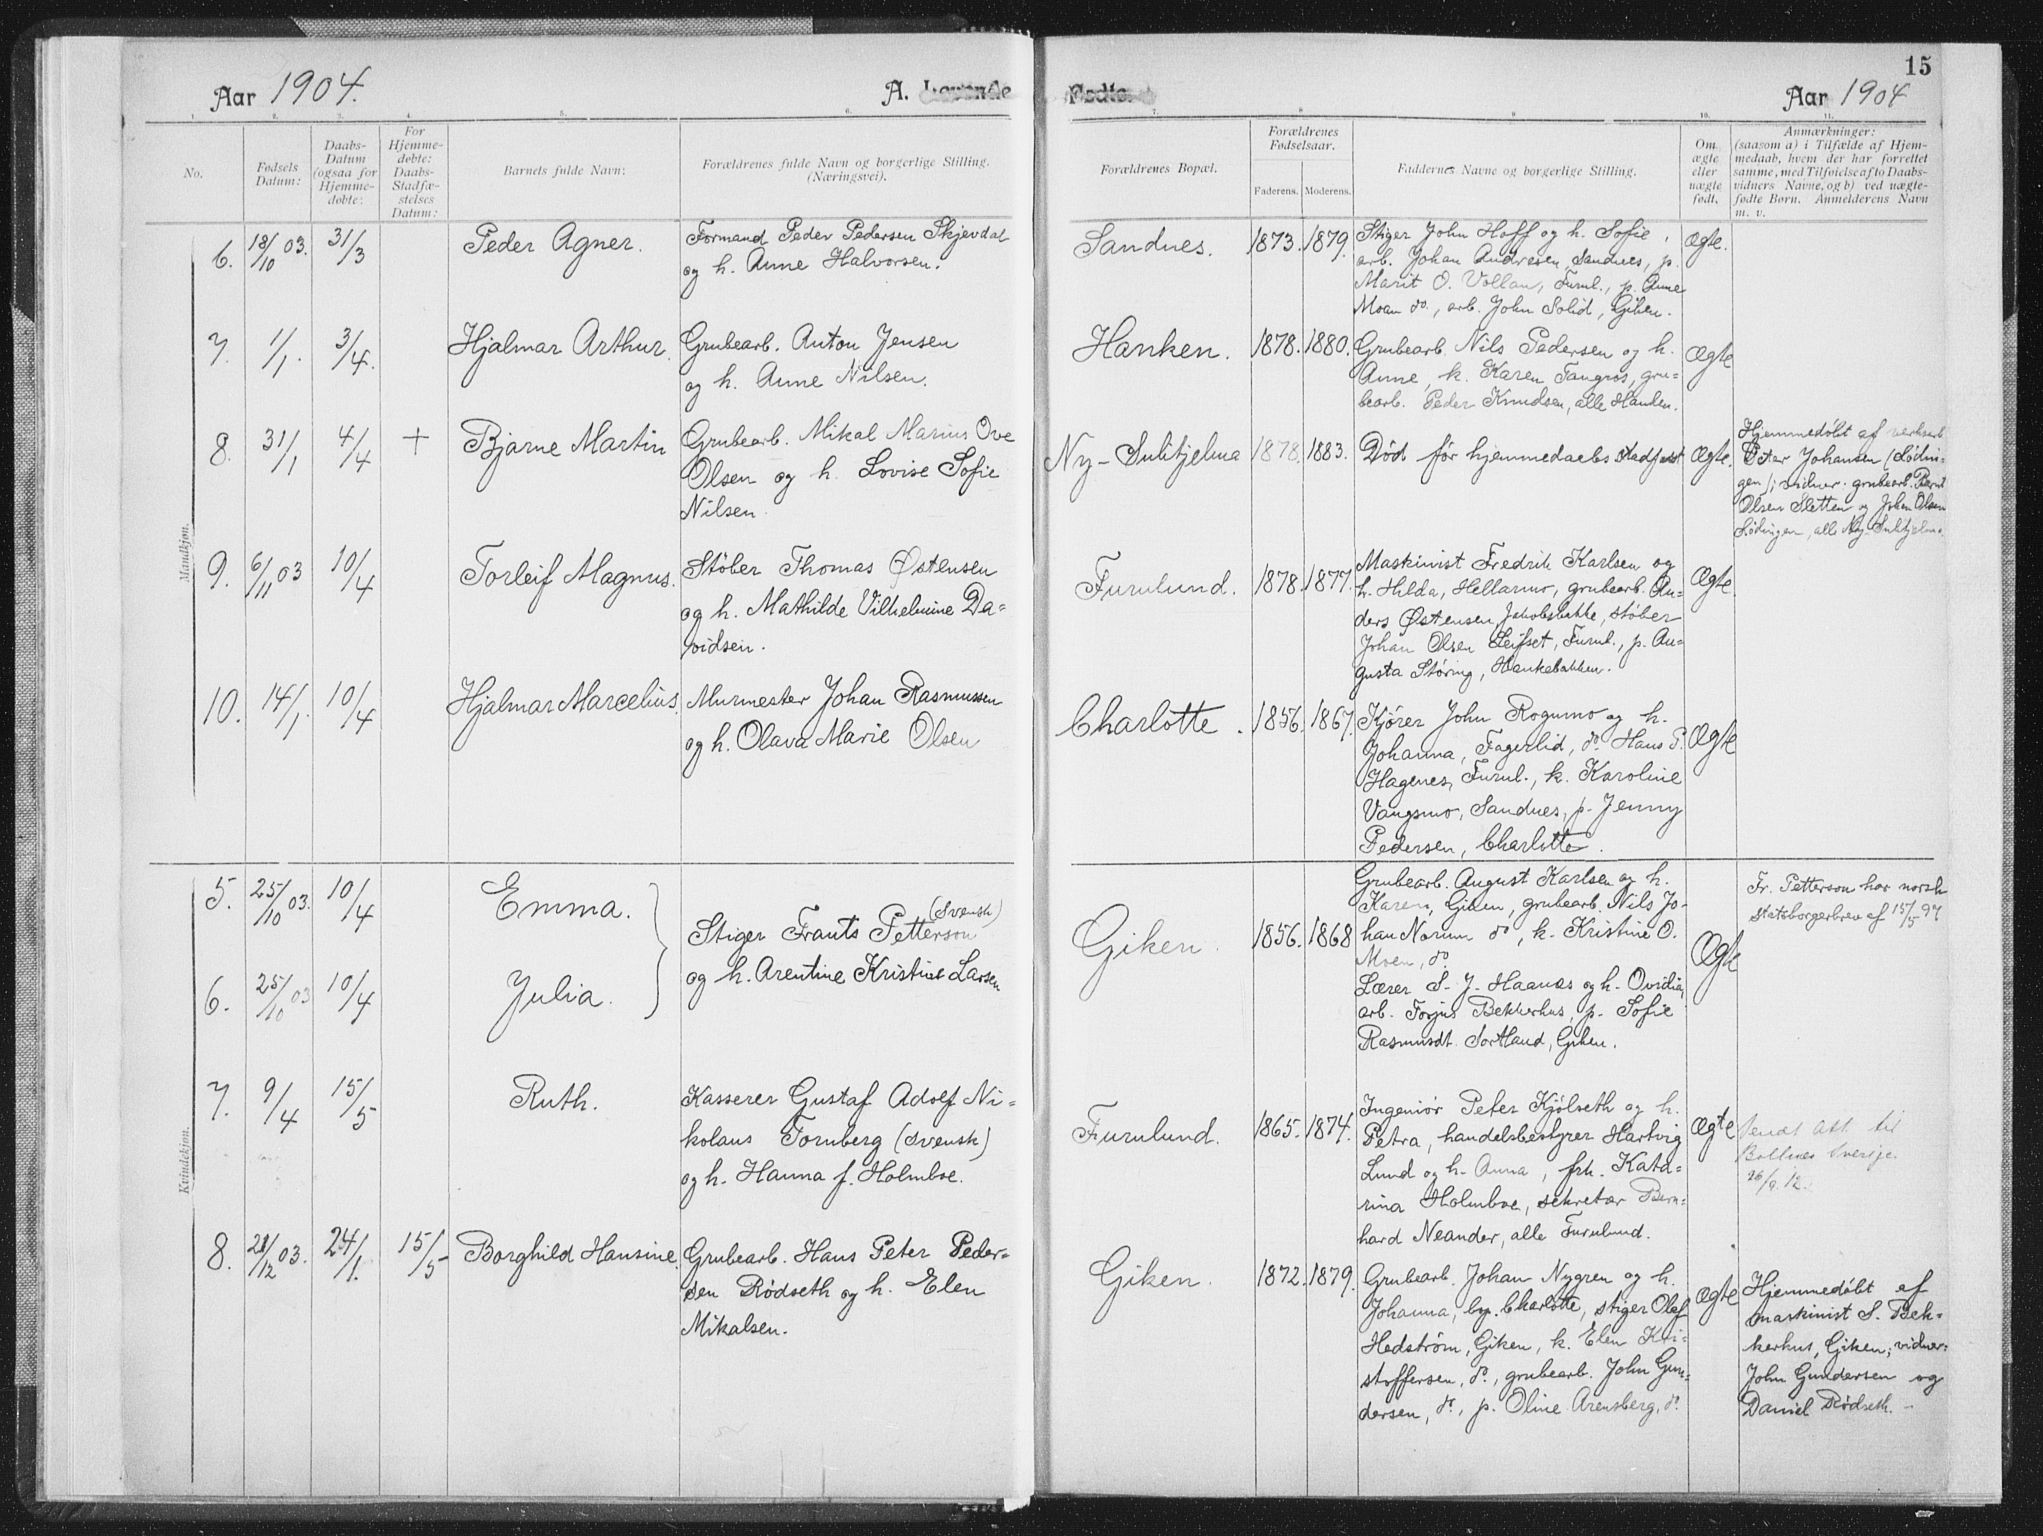 Aar 1904.
A. Levende
1. 2. 3. 4. 5. 6.
No.
Fødsels Datum:
Daabs-Datum (ogsaa for Hjemme-døbte:
For Hjemme-døbte: Daabs-Stadfæ-stelses Datum:
Barnets fulde Navn:
Forældrenes fulde Navn og borgerlige Stilling.
(Næringsvei).
Mandkjøn.
6. 18/10 03. 31/3 Peder Agner. Formand Peder Pedersen Skjevdal
og h. Anne Halvorsen.
7. 1/1. 3/4. Hjalmar Arthur. Grubearb. Anton Jensen
og h. Anne Nilsen.
8. 31/1 4/4 + Bjarne Martin Grubearb. Mikal Marius Ove
Olsen og h. Lovise Sofie
Nilsen.
9. 6/11 03 10/4 Torleif Magnus. Støber Thomas Østensen
og h. Mathilde Vilhelmine Da=
vidsen.
10. 14/1. 10/4 Hjalmar Marcelius. Murmester Johan Rasmussen
og h. Olava Marie Olsen
Kvindekjøn.
5. 25/10 03. 10/4 Emma.
(Svensk)
Stiger Frants Petterson
og h. Arentine Kristine Larsen
6. 25/10 03 10/4 Julia.
7. 9/4 15/5 Ruth. Kasserer Gustaf Adolf Ni=
kolaus Tornberg (svensk)
og h. Hanna f. Holmboe.
8. 28/12 03. 24/1. 15/5 Borghild Hansine. Grubearb. Hans Peter Peder=
sen Rødseth og h. Elen
Mikalsen.
15
Fødte.
Aar 1904
7. 8. 9. 10. 11.
Forældrenes Bopæl.
Forældrenes Fødselsaar.
Faderens. Moderens.
Faddernes Navne og borgerlige Stilling.
Om ægte eller uægte født.
Anmærkninger:
(saasom a) i Tilfælde af Hjem-
medaab, hvem der har forrettet
samme, med Tilføielse af to Daabs-
vidners Navne, og b) ved uægte-
fødte Børn. Anmelderens Navn
m. v.
Sandnes. 1873. 1879. Stiger John Hoff og h. Sofie, Ægte.
arb. Johan Andresen, Sandnes, p.
Marit O. Vollan, Furul., p. Anne
Moan do., arb. John Solid, Giken.
Hanken. 1878. 1880. Grubearb. Nils Pedersen og h. Ægte
Anne, k. Karen Fangros, gru=
bearb. Peder Knudsen, alle Hanken.
Ny-Sulitjelma 1878. 1883. Død før hjemmedaabs stadfæst Ægte.
Hjemmedøbt af verksarb.
Peter Johansen (Lødin-
gen); vidner: grubearb. Bernt
Olsen Sletten og Johan Olsen
Lødingen, alle Ny-Sulitjelma.
Furulund. 1878. 1877. Maskinist Fredrik Karlsen og Ægte.
h. Hilda, Hellarmo, grubearb. An=
ders Østensen, Jakobsbakke, støber
Johan Olsen Leifset, Furul., p. Au=
gusta Støring, Hankebakken.
Charlotte. 1856. 1867. Kjører John Rogumo og h. Ægte
Johanna, Fagerlid, do. Hans P.
Hagenes, Furul., k. Karoline
Vangsmo, Sandnes, p. Jenny
Pedersen, Charlotte.
Giken. 1856. 1868 Ægte
Grubearb. August Karlsen og h.
Karen, Giken, grubearb. Nils Jo-
han Norum do, k. Kristine O.
Moen, do.
Lærer S. J. Haanes og h. Ovidia,
arb. Torjus Bekkerhus, p. Sofie
Rasmusdt. Sortland, Giken.
Fr. Petterson har norsk
statsborgerbrev af 15/5 97
Furulund. 1865. 1874. Ægte
Ingeniør Peter Kjølseth og h.
Petra, handelsbestyrer Hartvig
Lund og h. Anna, frk. Kata=
rina Holmboe, sekretær Bern=
hard Neander, alle Furulund.
Sendt att. til
Bollnes Sverige.
26/9. 12.
Giken. 1872. 1879. Ægte
Grubearb. Johan Nygren og h.
Johanna, by. Charlotte, stiger Olaf
Hedstrøm, Giken, k. Elen Kri=
stoffersen, do., grubearb. John Gun=
dersen, do., p. Oline Arensberg, do.
Hjemmedøbt af
maskinist S. Bek=
kerhus, Giken; vidner:
John Gundersen og
Daniel Rødseth.